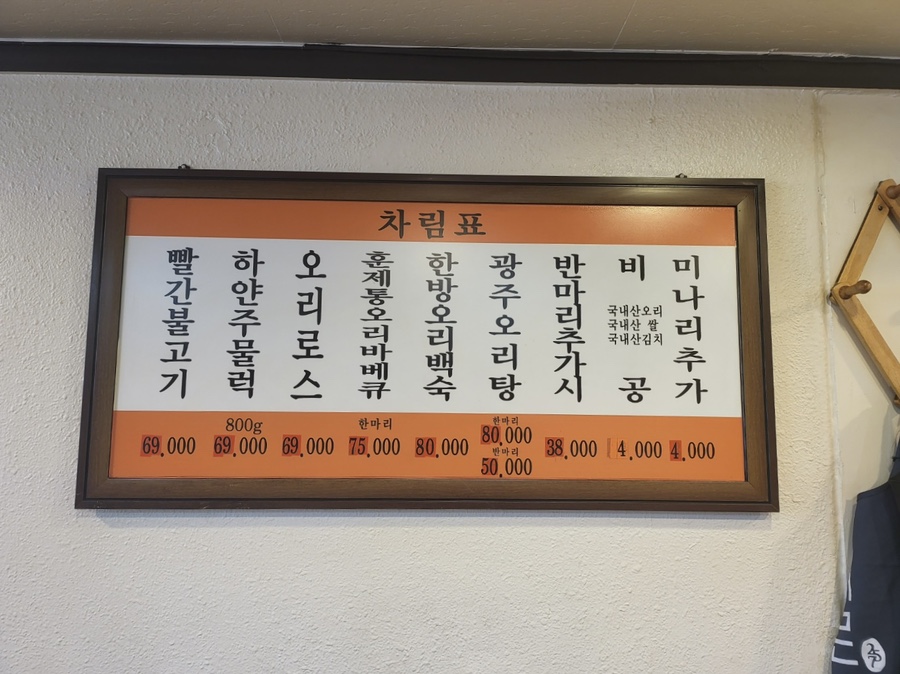 차림표
빨간불고기
하얀주물럭
오리로스
훈제통오리바베큐
한방오리백숙
광주오리탕
반마리추가시
비
국내산오리
국내산 쌀
국내산김치
공
미나리추가
69.000
800g
69.000
69.000
한마리
75.000
80.000
한마리
80.000
반마리
50.000
38.000
4.000
4.000